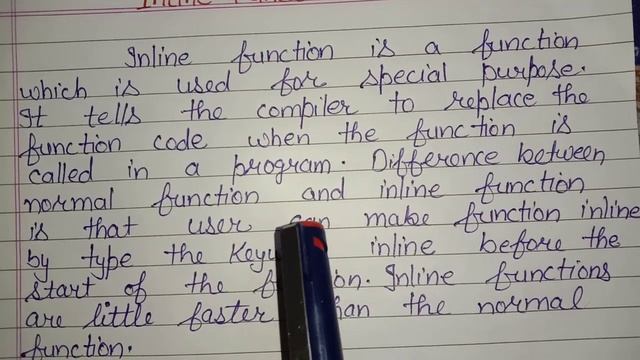 Inline function is a function
which is used for special purpose.
It tells the compiler to replace the
function code when the function is
called in a program. Difference between
normal function and inline function
is that user can make function inline
by type the inline before the
start of the Inline functions
are little faster than the normal
function.